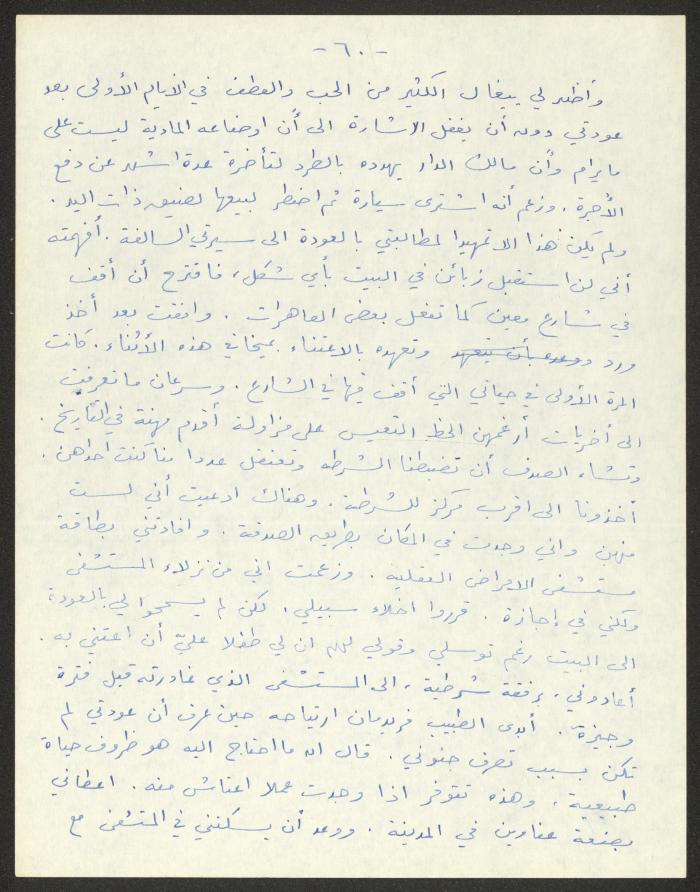 - ٦٠ -
وأظهر لي ييغال الكثير من الحب والعطف في الأيام الأولى بعد
عودتي دون أن يغفل الاشارة الى أن اوضاعه المادية ليست على
ما يرام وأن مالك الدار يهدده بالطرد لتأخره عدة اشهر عن دفع
الأجرة. وزعم أنه اشترى سيارة ثم اضطر لبيعها لضيق ذات اليد.
ولم يكن هذا الا تمهيدا لمطالبتي بالعودة الى سيرتي السالفة. أفهمته
أني لن استقبل زبائن في البيت بأي شكل، فاقترح أن أقف
في شارع معين كما تفعل بعض العاهرات. وافقت بعد أخذ
ورد ووعده بأن يتعهد وتعهده بالاعتناء بميخا في هذه الأثناء. كانت
المرة الأولى في حياتي التي أقف فيها في الشارع. وسرعان ما تعرفت
الى أخريات أرغمهن الحظ التعيس على مزاولة أقدم مهنة في التاريخ.
وتشاء الصدف أن تضبطنا الشرطة وتعتقل عددا منا كنت احداهن.
أخذونا الى اقرب مركز للشرطة. وهناك ادعيت أني لست
منهن واني وجدت في المكان بطريق الصدفة. وافادتني بطاقة
مستشفى الامراض العقلية. وزعمت اني من نزلاء المستشفى
ولكني في إجازة. قرروا اخلاء سبيلي. لكن لم يسمحوا لي بالعودة
الى البيت رغم توسلي وقولي لهم ان لي طفلا عليّ أن اعتني به.
أعادوني، برفقة شرطية، الى المستشفى الذي غادرته قبل فترة
وجيزة. أبدى الطبيب فريدمان ارتياحه حين عرف أن عودتي لم
تكن بسبب تصرف جنوني. قال ان ما احتاج اليه هو ظروف حياة
طبيعية، وهذه تتوفر اذا وجدت عملا اعتاش منه. اعطاني
بضعة عناوين في المدينة. ووعد أن يسكنني في المستشفى مع